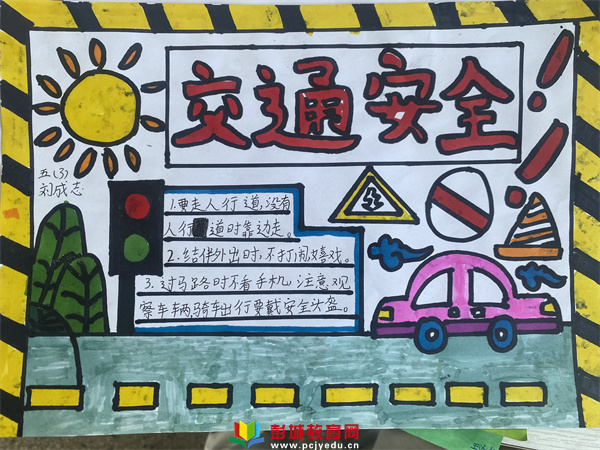 交通安全!!
五(3)
刘成志
1.要走人行道,没有
人行道时靠边走。
2.结伴外出时,不打闹嬉戏。
3.过马路时不看手机,注意观
察车辆,骑车出行要戴安全头盔。
彭城教育网
www.pcjyedu.cn